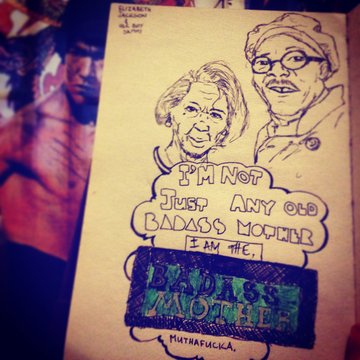 ELIZABETH
JACKSON
I'M NOT
JUST ANY OLD
BADASS MOTHER
I AM THE,
BADASS
MOTHER
MUTHAFUCKA.